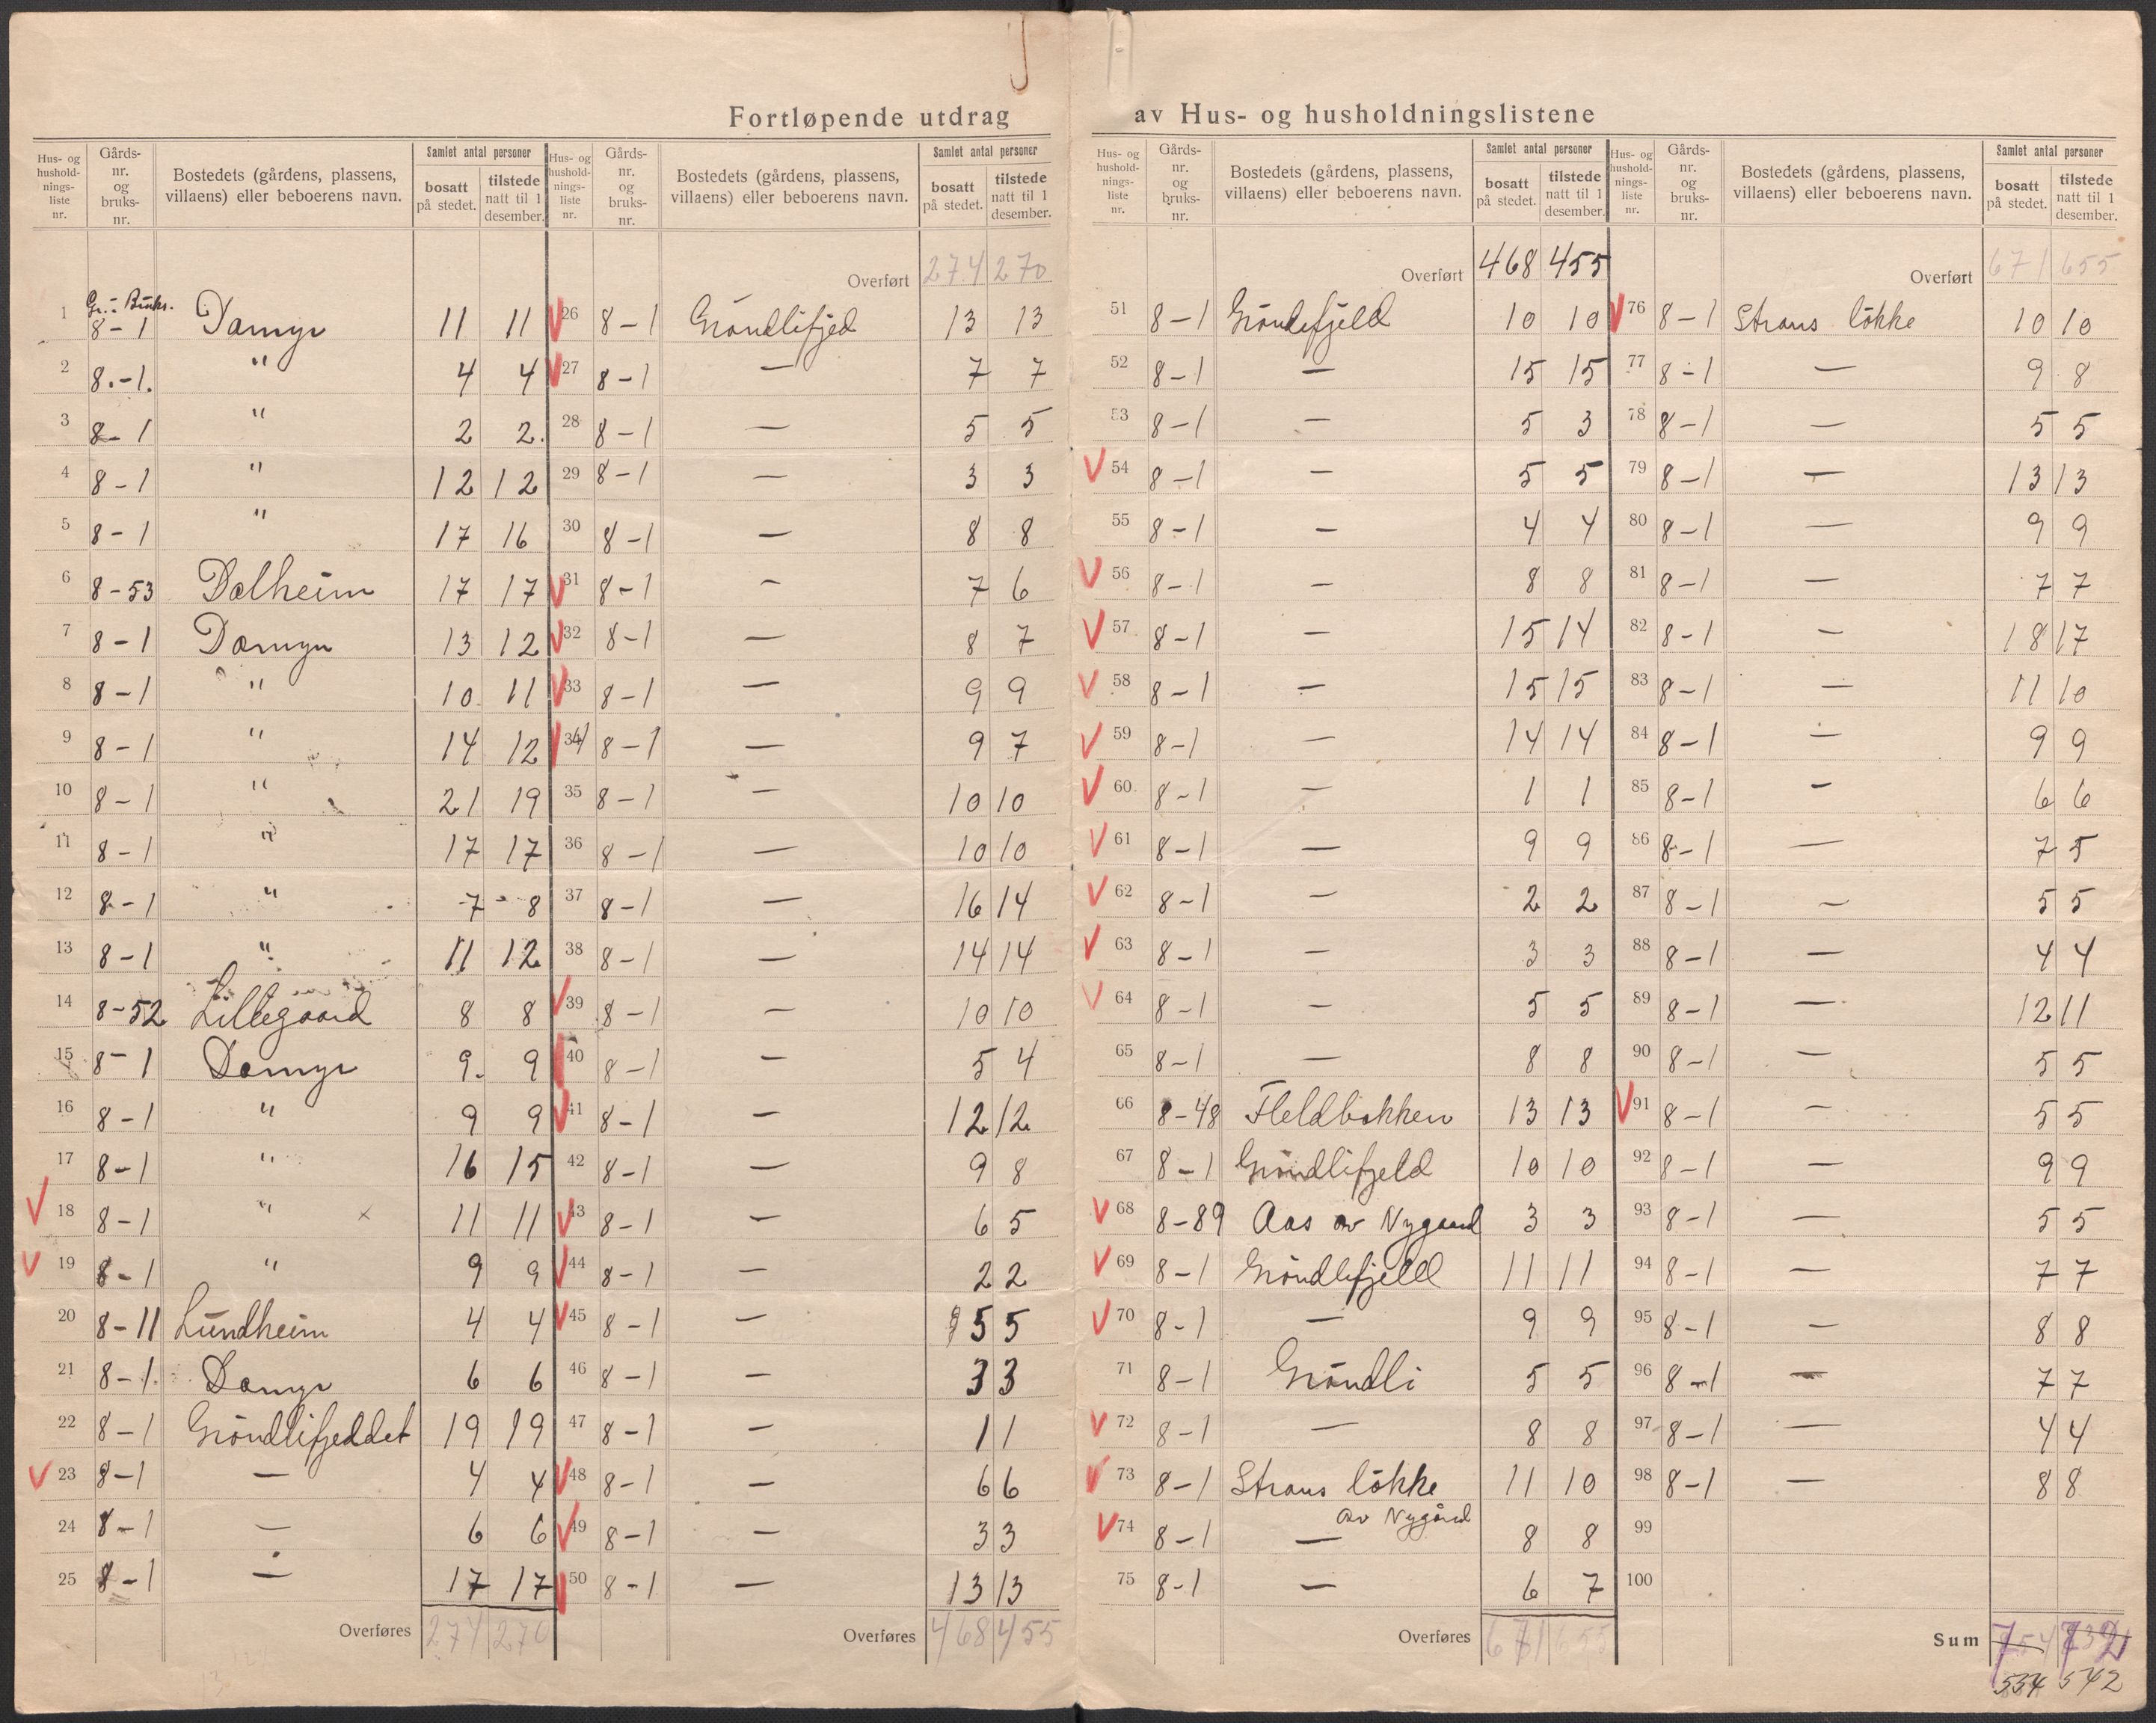 Fortløpende utdrag av Hus- og husholdningslistene
Hus- og hushold-nings-liste nr. Gårds-nr. og bruks-nr. Bostedets (gårdens, plassens, villaens) eller beboerens navn. Samlet antal personer bosatt på stedet. tilstede natt til 1 desember.
Gr.- Bruks.
1 8-1 Damyr 11 11
2 8.-1. " 4 4
3 8-1 " 2 2.
4 8-1 " 12 12
5 8-1 " 17 16
6 8-53 Dalheim 17 17
7 8-1 Damyr 13 12
8 8-1 " 10 11
9 8-1 " 14 12
10 8-1 " 21 19
11 8-1 " 17 17
12 8-1 " 7 8
13 8-1 " 11 12
14 8-52 Lillegaard 8 8
15 8-1 Damyr 9. 9
16 8-1 " 9 9
17 8-1 " 16 15
V 18 8-1 " x 11 11
V 19 8-1 " 9 9
20 8-11 Lundheim 4 4
21 8-1 Damyr 6 6
22 8-1 Gröndlifjeddet 19 19
V 23 8-1 — 4 4
24 8-1 — 6 6
25 8-1 — 17 17
Overføres 274 270
Hus- og hushold-nings-liste nr. Gårds-nr. og bruks-nr. Bostedets (gårdens, plassens, villaens) eller beboerens navn. Samlet antal personer bosatt på stedet. tilstede natt til 1 desember.
Overført 274 270
V 26 8-1 Gröndlifjed 13 13
V 27 8-1 — 7 7
28 8-1 — 5 5
29 8-1 — 3 3
30 8-1 — 8 8
V 31 8-1 — 7 6
V 32 8-1 — 8 7
V 33 8-1 — 9 9
V 34 8-1 — 9 7
35 8-1 — 10 10
36 8-1 — 10 10
37 8-1 — 16 14
38 8-1 — 14 14
V 39 8-1 — 10 10
40 8-1 — 5 4
V 41 8-1 — 12 12
42 8-1 — 9 8
V 43 8-1 — 6 5
V 44 8-1 — 2 2
V 45 8-1 — 5 5
46 8-1 — 3 3
47 8-1 — 1 1
V 48 8-1 — 6 6
V 49 8-1 — 3 3
V 50 8-1 — 13 13
Overføres 468 455
Hus- og hushold-nings-liste nr. Gårds-nr. og bruks-nr. Bostedets (gårdens, plassens, villaens) eller beboerens navn. Samlet antal personer bosatt på stedet. tilstede natt til 1 desember.
Overført 468 455
51 8-1 Gröndefjeld 10 10
52 8-1 — 15 15
53 8-1 — 5 3
V 54 8-1 — 5 5
55 8-1 — 4 4
V 56 8-1 — 8 8
V 57 8-1 — 15 14
V 58 8-1 — 15 15
V 59 8-1 — 14 14
V 60. 8-1 — 1 1
V 61 8-1 — 9 9
V 62 8-1 — 2 2
V 63 8-1 — 3 3
V 64 8-1 — 5 5
65 8-1 — 8 8
66 8-48 Fleldbakken 13 13
67 8-1 Gröndlifjeld 10 10
V 68 8-89 Aas av Nygaard 3 3
V 69 8-1 Gröndlefjeld 11 11
V 70 8-1 — 9 9
71 8-1 Gröndli 5 5
V 72 8-1 — 8 8
V 73 8-1 Straus lökke 11 10
av Nygård
V 74 8-1 — 8 8
75 8-1 — 6 7
Overføres 671 655
Hus- og hushold-nings-liste nr. Gårds-nr. og bruks-nr. Bostedets (gårdens, plassens, villaens) eller beboerens navn. Samlet antal personer bosatt på stedet. tilstede natt til 1 desember.
Overført 671 655
V 76 8-1 Straus lökke 10 10
77 8-1 — 9 8
78 8-1 — 5 5
79 8-1 — 13 13
80 8-1 — 9 9
81 8-1 — 7 7
82 8-1 — 18 17
83 8-1 — 11 10
84 8-1 — 9 9
85 8-1 — 6 6
86 8-1 — 7 5
87 8-1 — 5 5
88 8-1 — 4 4
89 8-1 — 12 11
90 8-1 — 5 5
V 91 8-1 — 5 5
92 8-1 — 9 9
93 8-1 — 5 5
94 8-1 — 7 7
95 8-1 — 8 8
96 8-1 — 7 7
97 8-1 — 4 4
98 8-1 — 8 8
99
100
Sum
534 542